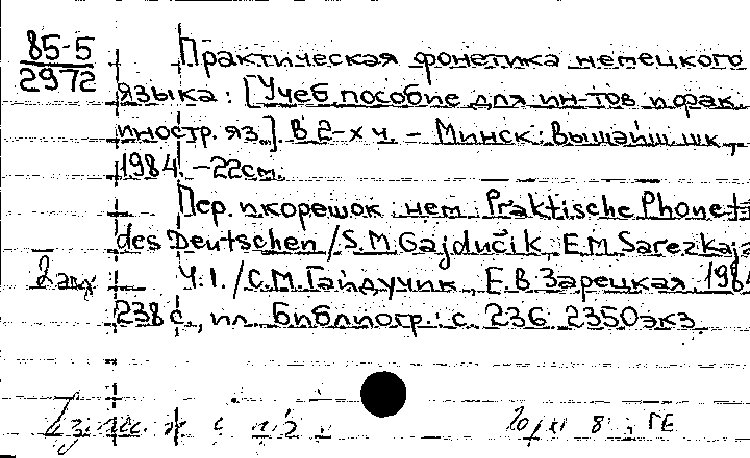 85-5
2972
Практическая фонетика немецкого
языка: [Учеб пособие для ин-тов и фак.
иностр. яз.]. В 2-х ч. - Минск: Вышэйш. шк.,
1984. - 22см.
Пер. и корешок: нем. Praktische Phonet
des Deutschen / S.M. Gajdučik, E.M. Sarezkaja
2 экз
Ч.1. / С.М. Гайдучик, Е.В. Зарецкая. 198
238 с., ил. Библиогр.: с. 236 2350 экз